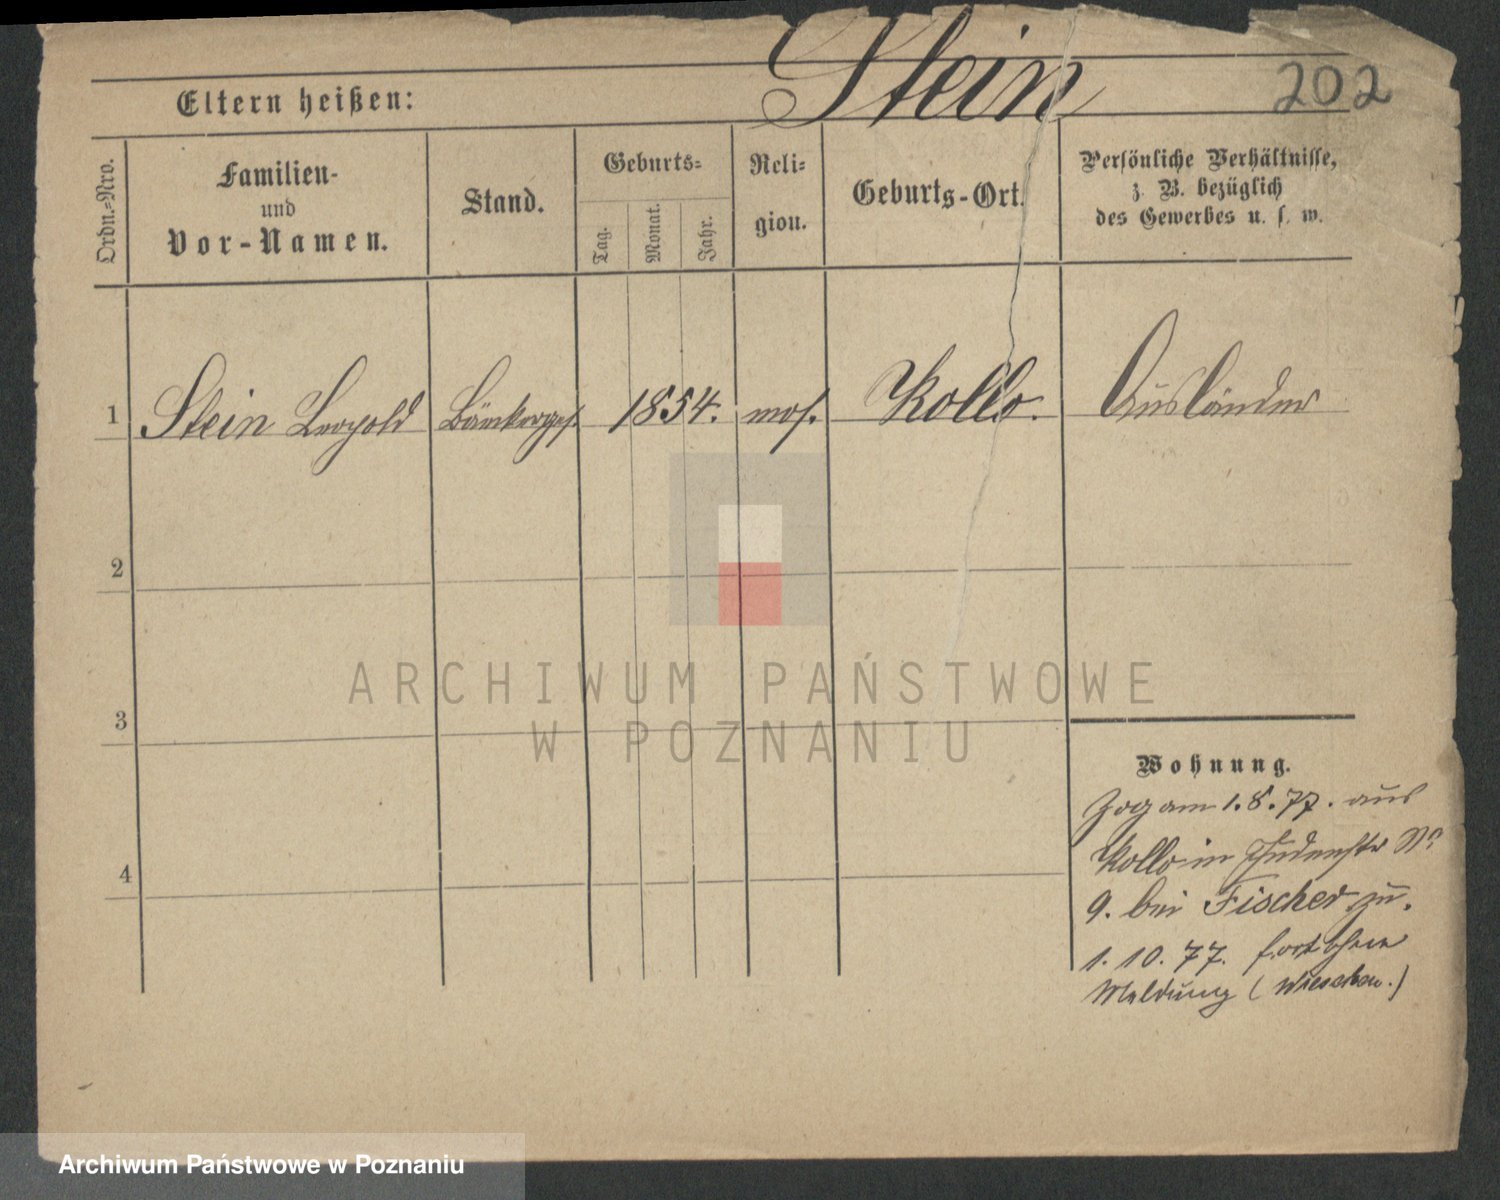 Stein
202
Eltern heißen:
Ordn.-Nro.
Familien-
und
Vor-Namen.
Stand.
Geburts-
Tag.
Monat.
Jahr.
Reli-
gion.
Geburts-Ort.
Persönliche Verhältnisse,
z. B. bezüglich
des Gewerbes u. s. w.
1 Stein Leopold Bäckerges. 1854. mos. Kollo. Ausländer
2
3
4
ARCHIWUM PAŃSTWOWE
W POZNANIU
Wohnung.
Zog am 1.8.77. aus
Kollo in Judenstr No
9. bei Fischer zu.
1.10.77. fort ohne
Meldung (Wieschen.)
Archiwum Państwowe w Poznaniu